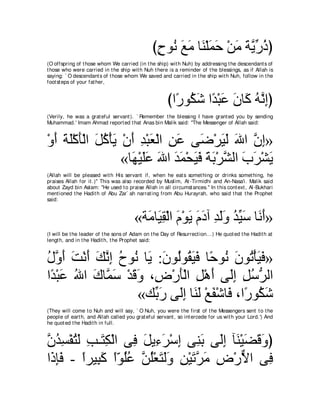 (ذُرِّيَّةَ مَنْ حَمَلْنَا مَعَ نُوحٍ)
(O offspring of those whom We carried (in the ship) with Nuh) by addressing the descendants of
those who were carried in the ship with Nuh there is a reminder of the blessings, as if Allah is
saying: `O descendants of those whom We saved and carried in the ship with Nuh, follow in the
footsteps of your father,
(إِنَّهُ كَانَ عَبْدًا شَكُورًا)
(Verily, he was a grateful servant). `Remember the blessing I have granted you by sending
Muhammad.' Imam Ahmad reported that Anas bin Malik said: "The Messenger of Allah said:
«إِنَّ اللهَ لَيَرْضَى عَنِ الْعَبْدِ أَنْ يَأْكُلَ الْأَكْلَةَ أَوْ
يَشْرَبَ الشَّرْبَةَ فَيَحْمَدَ اللهَ عَلَيْهَا»
(Allah will be pleased with His servant if, when he eats something or drinks something, he
praises Allah for it.)" This was also recorded by Muslim, At-Tirmidhi and An-Nasa'i. Malik said
about Zayd bin Aslam: "He used to praise Allah in all circumstances." In this context, Al-Bukhari
mentioned the Hadith of Abu Zar`ah narrating from Abu Hurayrah, who said that the Prophet
said:
«أَنَا سَيِّدُ وَلَدِ آدَمَ يَوْمَ الْقِيَامَةِ»
(I will be the leader of the sons of Adam on the Day of Resurrection...) He quoted the Hadith at
length, and in the Hadith, the Prophet said:
«فَيَأْتُونَ نُوحًا فَيَقُولُونَ: يَا نُوحُ إِنَّكَ أَنْتَ أَوَّلُ
الرُّسُلِ إِلَى أَهْلِ الْأَرْضِ، وَقَدْ سَمَّاكَ اللهُ عَبْدًا
شَكُورًا، فَاشْفَعْ لَنَا إِلَى رَبِّكَ»
(They will come to Nuh and will say, `O Nuh, you were the first of the Messengers sent to the
people of earth, and Allah called you grateful servant, so intercede for us with your Lord.') And
he quoted the Hadith in full.
(وَقَضَيْنَآ إِلَى بَنِى إِسْرَءِيلَ فِى الْكِتَـبِ لَتُفْسِدُنَّ
فِى الاٌّرْضِ مَرَّتَيْنِ وَلَتَعْلُنَّ عُلُوًّا كَبِيرًا - فَإِذَا